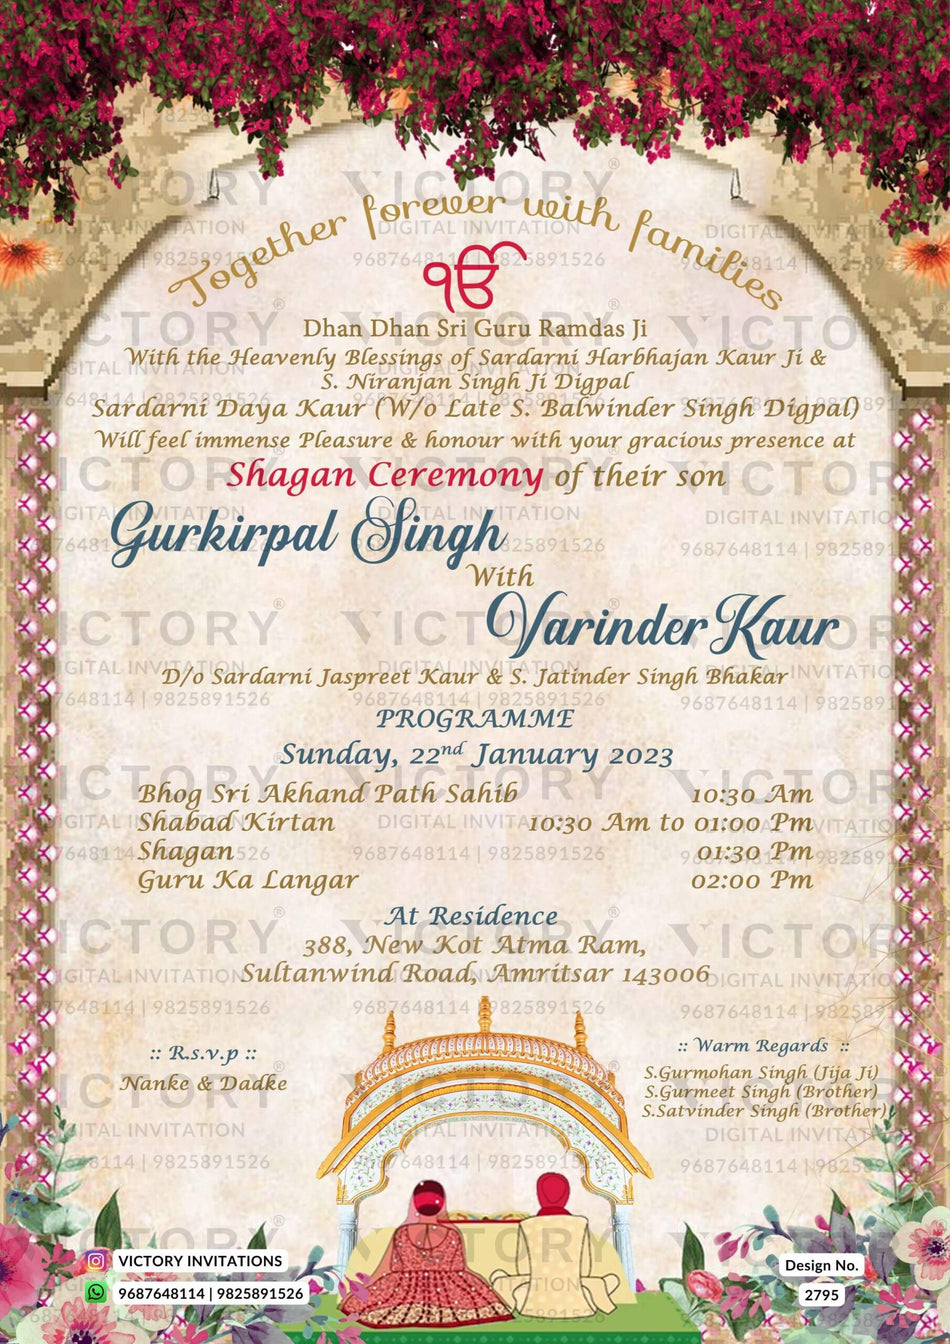 Together forever with families
ੴ
Dhan Dhan Sri Guru Ramdas Ji
With the Heavenly Blessings of Sardarni Harbhajan Kaur Ji &
S. Niranjan Singh Ji Digpal
Sardarni Daya Kaur (W/o Late S. Balwinder Singh Digpal)
Will feel immense Pleasure & honour with your gracious presence at
Shagan Ceremony of their son
Gurkirpal Singh
With
Varinder Kaur
D/o Sardarni Jaspreet Kaur & S. Jatinder Singh Bhakar
PROGRAMME
Sunday, 22nd January 2023
Bhog Sri Akhand Path Sahib 10:30 Am
Shabad Kirtan 10:30 Am to 01:00 Pm
Shagan 01:30 Pm
Guru Ka Langar 02:00 Pm
At Residence
388, New Kot Atma Ram,
Sultanwind Road, Amritsar 143006
:: R.s.v.p ::
Nanke & Dadke
:: Warm Regards ::
S.Gurmohan Singh (Jija Ji)
S.Gurmeet Singh (Brother)
S.Satvinder Singh (Brother)
VICTORY INVITATIONS
9687648114 | 9825891526
Design No.
2795
VICTORY®
DIGITAL INVITATION
9687648114 | 9825891526